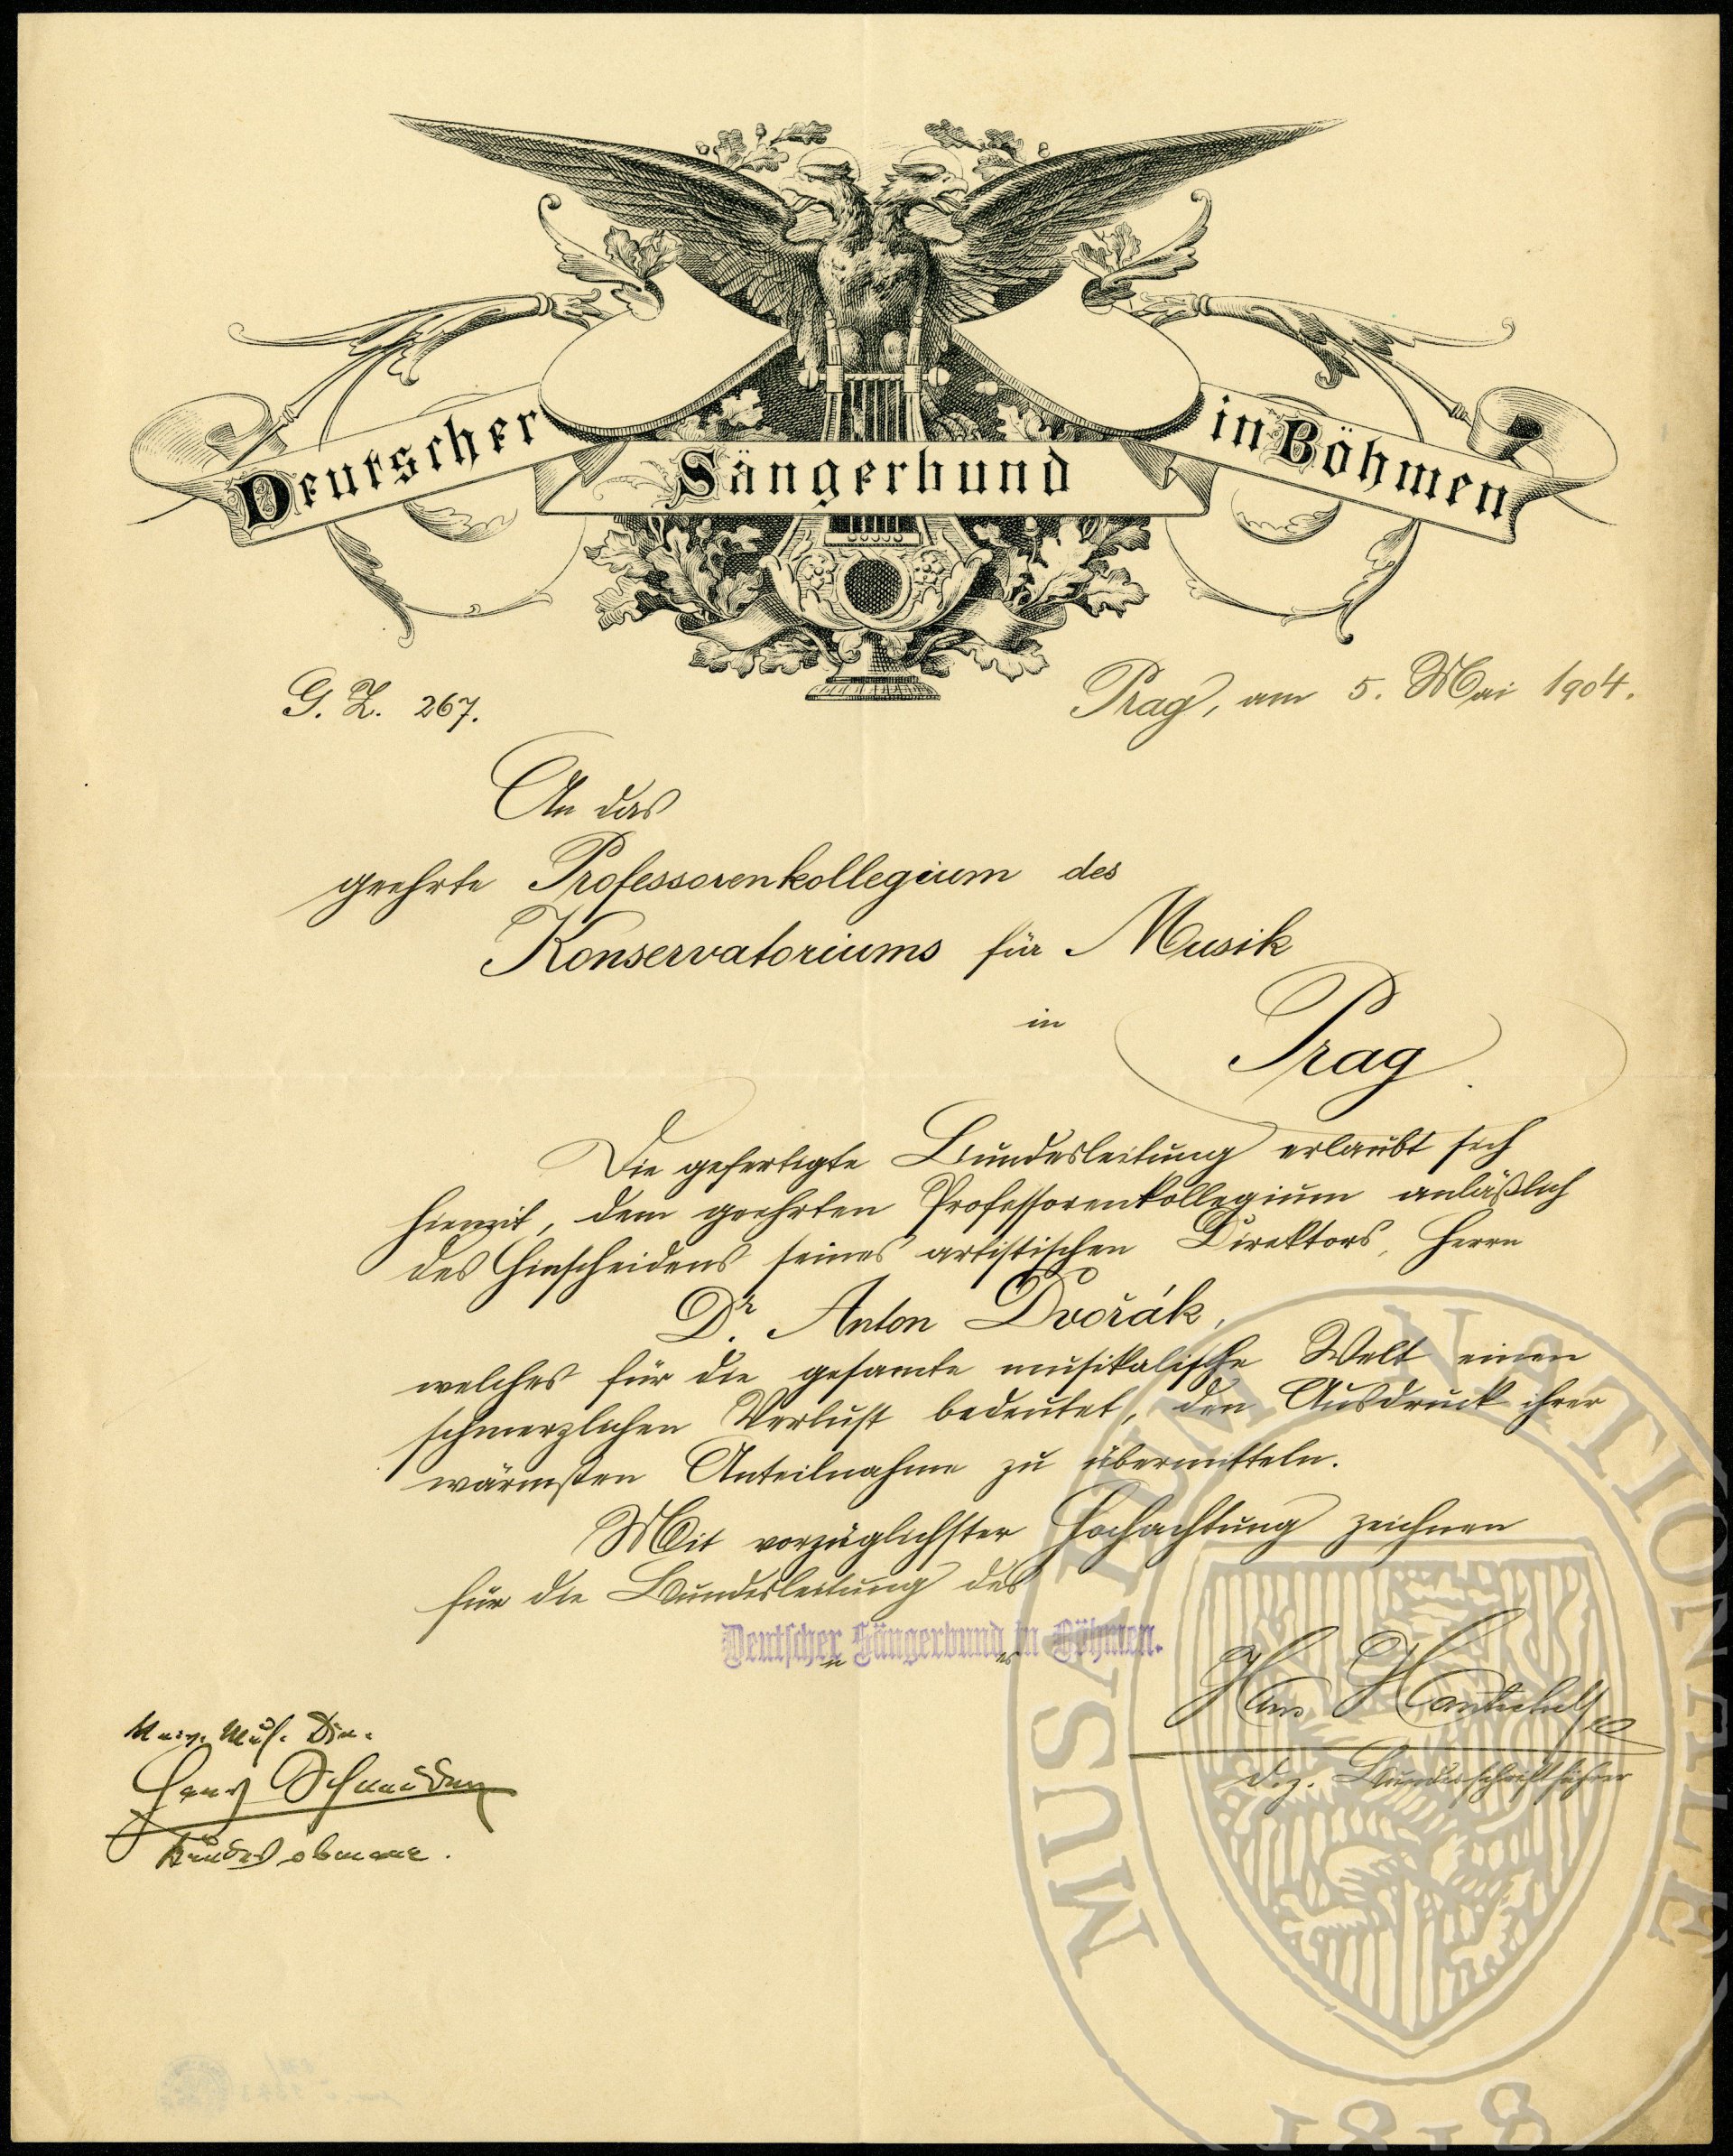 Deutscher Sängerbund in Böhmen
G. Z. 267.
Prag, am 5. Mai 1904.
An das
geehrte Professorenkollegium des
Konservatoriums für Musik
in
Prag.
Die gefertigte Bundesleitung erlaubt sich
hiemit, dem geehrten Professorenkollegium anläßlich
des Hinscheidens seines artistischen Direktors, Herrn
Dr. Anton Dvořák,
welches für die gesamte musikalische Welt einen
schmerzlichen Verlust bedeutet, den Ausdruck ihrer
wärmsten Anteilnahme zu übermitteln.
Mit vorzüglichster Hochachtung zeichnen
für die Bundesleitung des
Deutscher Sängerbund in Böhmen.
n es
Hans
dz. Bundesschriftführer
Univ. Mus. Dir.
Hans Schneider
Bundesobmann.
MUSAEUM NATIONALE
1818